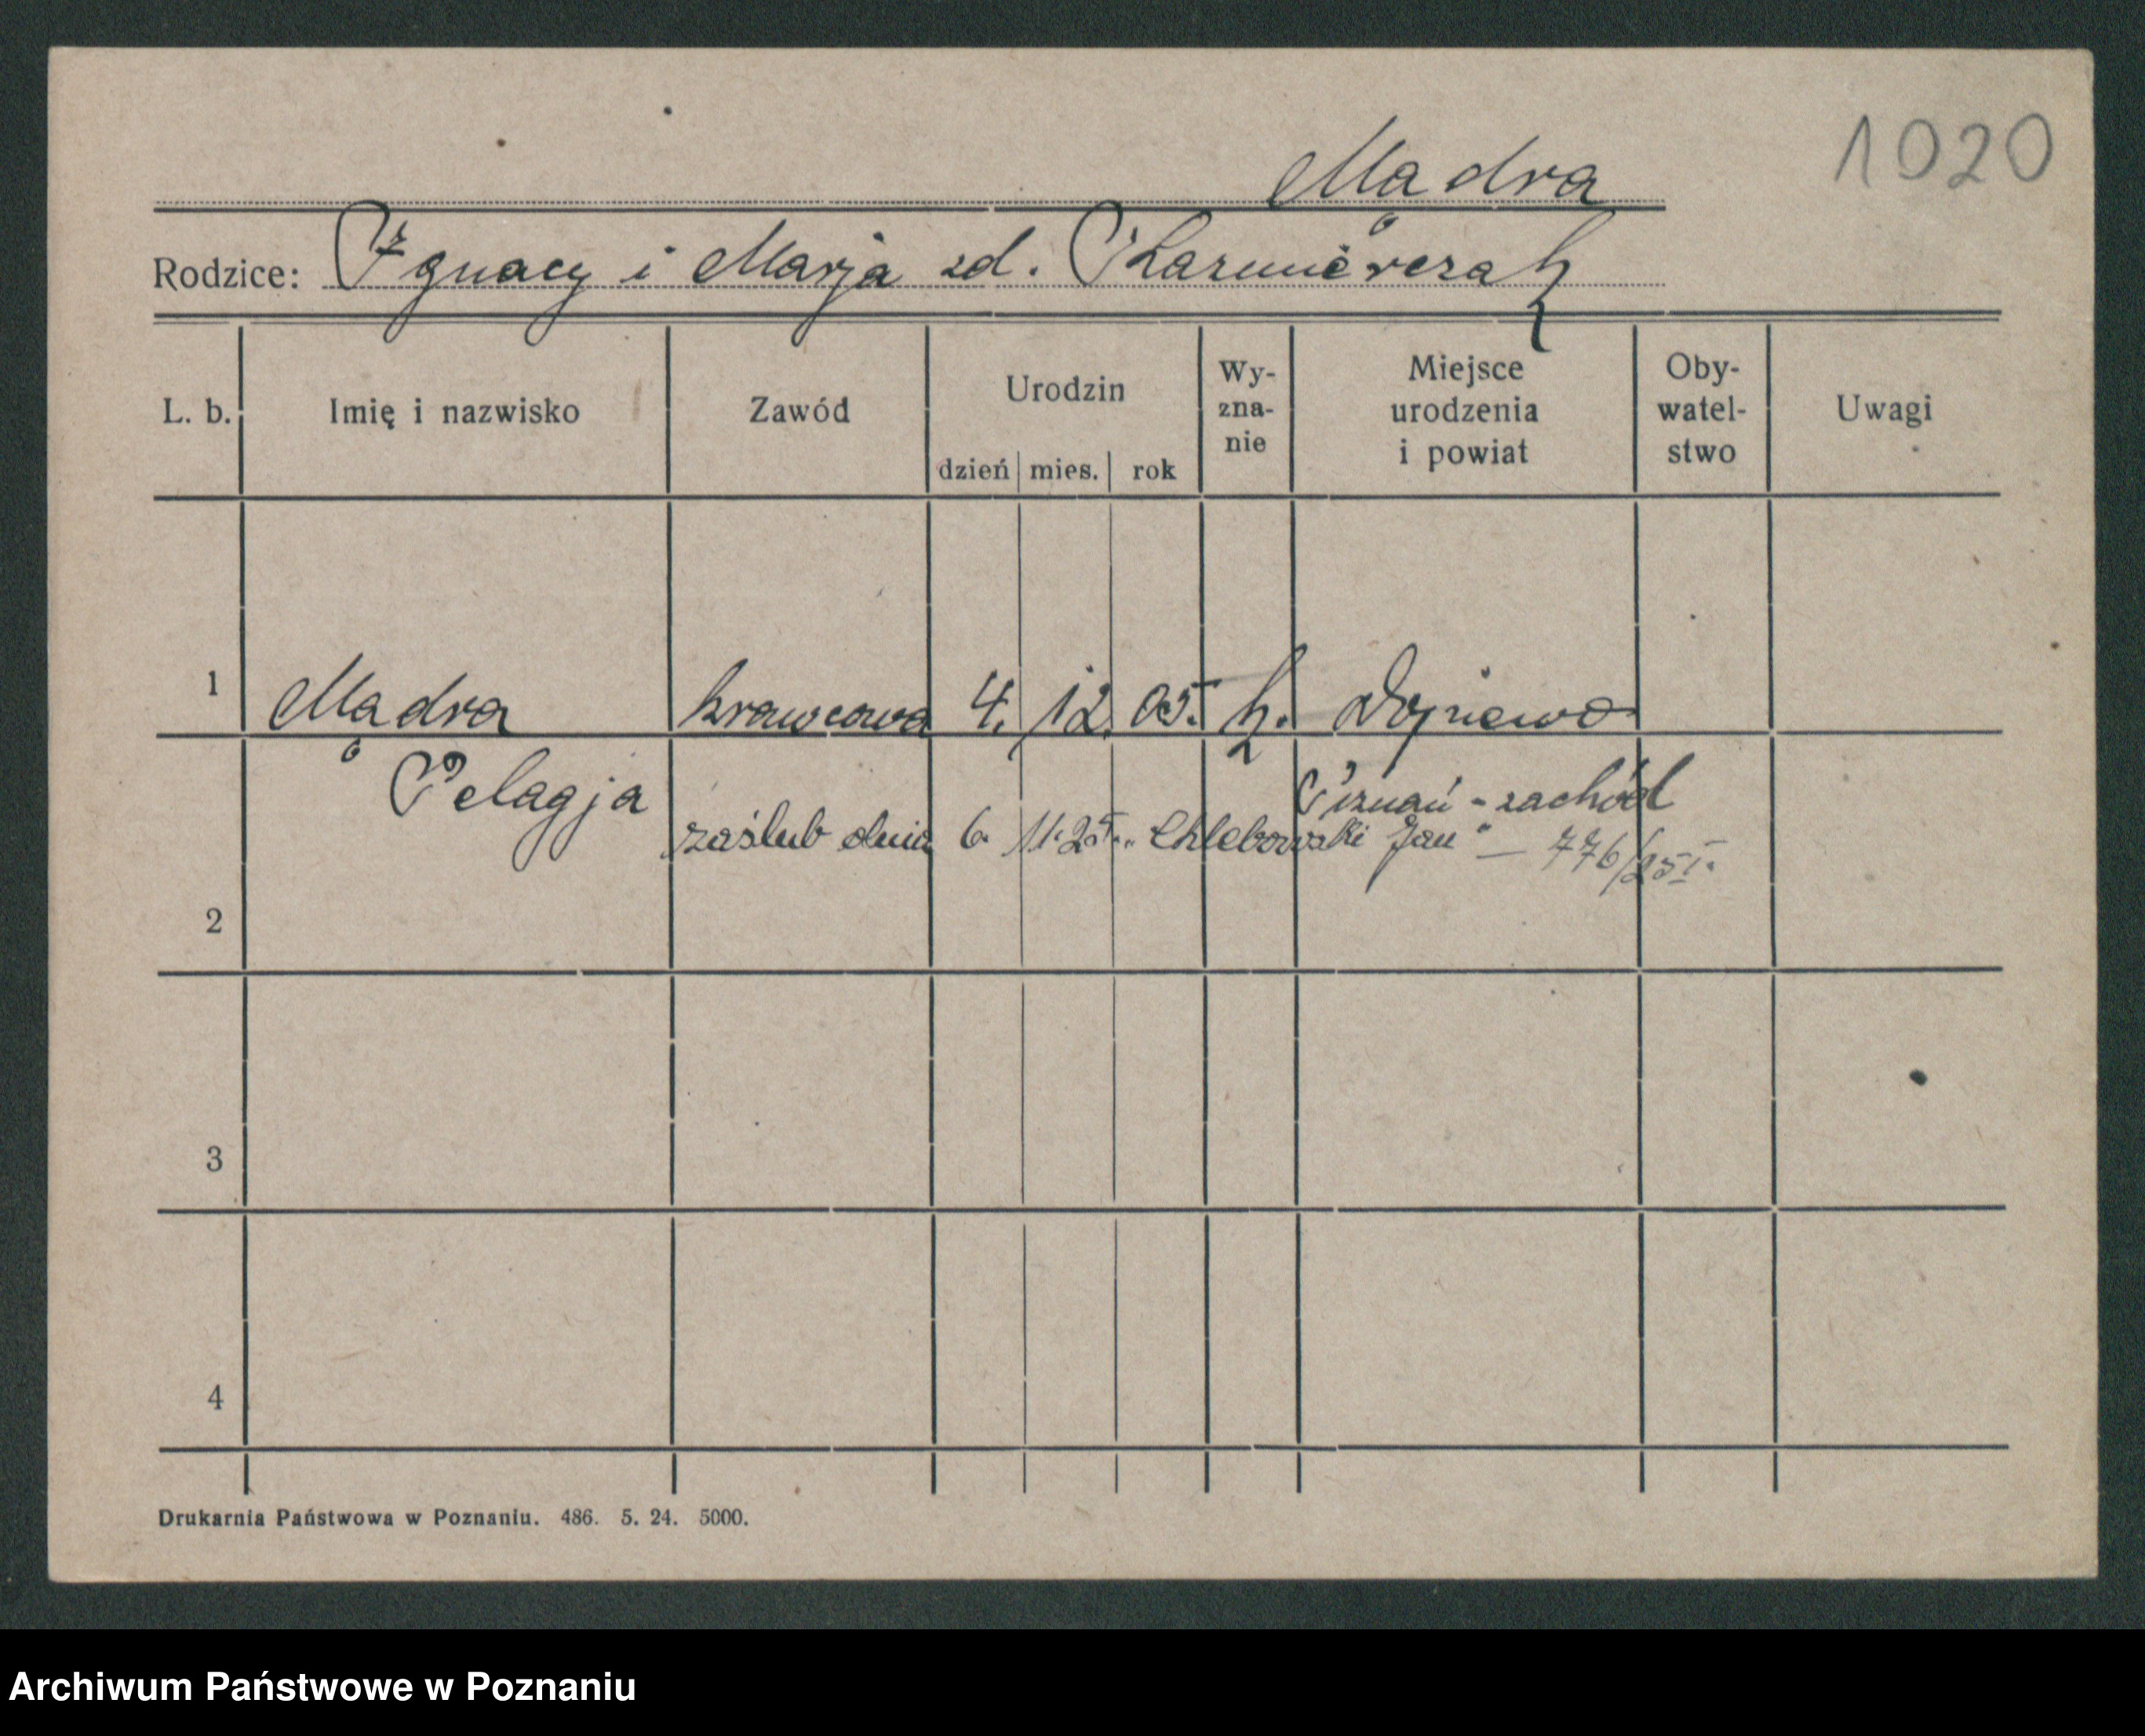 1020
Mądra
Rodzice: Ignacy i Marja zd. Kazmierczak
L. b. Imię i nazwisko Zawód Urodzin dzień mies. rok Wy-zna-nie Miejsce urodzenia i powiat Oby-watel-stwo Uwagi
1 Mądra krawcowa 4. 12. 05. k. Dopiewo
Pelagja Poznań - zachód
zaślub dnia 6. 11. 25 r. "Chlebowski Jan" — 776/25 I.
2
3
4
Drukarnia Państwowa w Poznaniu. 486. 5. 24. 5000.
Archiwum Państwowe w Poznaniu